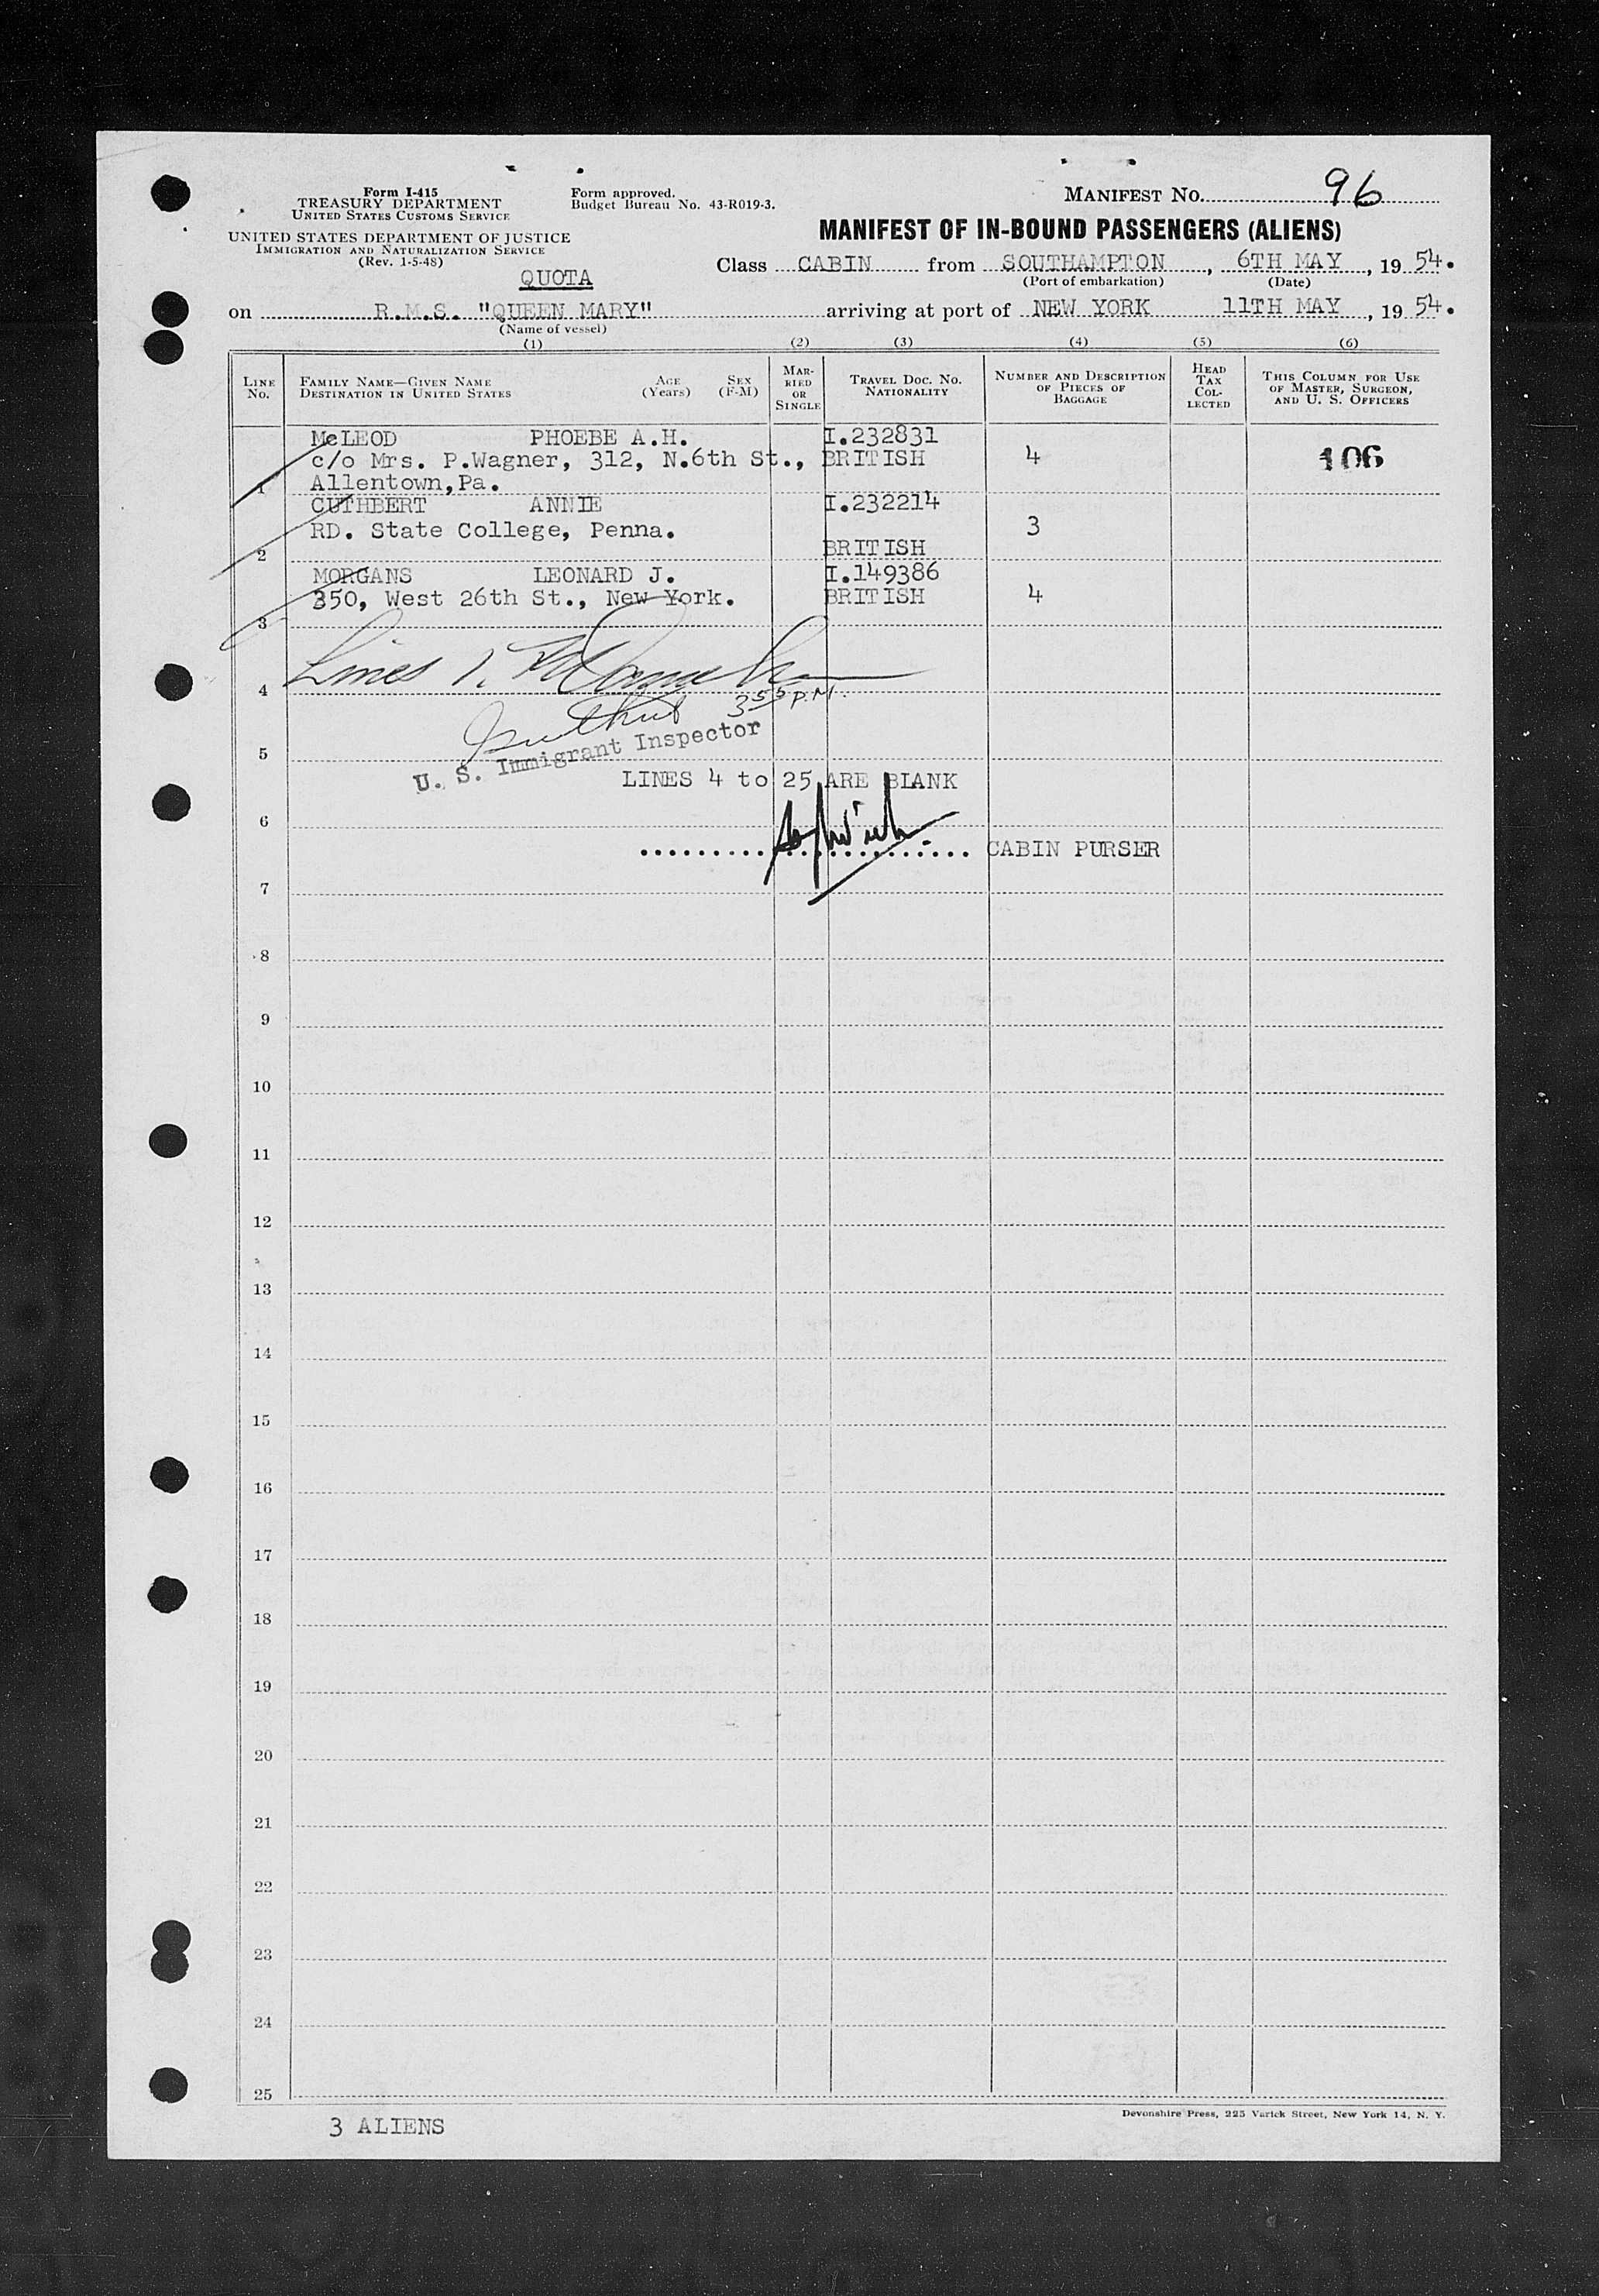 Form I-415
TREASURY DEPARTMENT
UNITED STATES CUSTOMS SERVICE
UNITED STATES DEPARTMENT OF JUSTICE
IMMIGRATION AND NATURALIZATION SERVICE
(Rev. 1-5-48)
Form approved.
Budget Bureau No. 43-R019-3.
MANIFEST NO. 96
MANIFEST OF IN-BOUND PASSENGERS (ALIENS)
QUOTA
Class CABIN from SOUTHAMPTON, 6TH MAY, 19 54.
(Port of embarkation) (Date)
on R.M.S. "QUEEN MARY" arriving at port of NEW YORK 11TH MAY, 19 54.
(Name of vessel)
(1) (2) (3) (4) (5) (6)
LINE NO.
FAMILY NAME—GIVEN NAME AGE SEX
DESTINATION IN UNITED STATES (Years) (F-M)
MARRIED OR SINGLE
TRAVEL DOC. NO. NATIONALITY
NUMBER AND DESCRIPTION OF PIECES OF BAGGAGE
HEAD TAX COLLECTED
THIS COLUMN FOR USE OF MASTER, SURGEON, AND U. S. OFFICERS
McLEOD PHOEBE A.H. I.232831
c/o Mrs. P.Wagner, 312, N.6th St., BRITISH 4 106
1 Allentown,Pa.
CUTHBERT ANNIE I.232214
RD. State College, Penna. 3
2 BRITISH
MORGANS LEONARD J. I.149386
350, West 26th St., New York. BRITISH 4
3
Lines 1.
4
355 P.M.
5
U. S. Immigrant Inspector
LINES 4 to 25 ARE BLANK
6
CABIN PURSER
7
8
9
10
11
12
13
14
15
16
17
18
19
20
21
22
23
24
25
Devonshire Press, 225 Varick Street, New York 14, N. Y.
3 ALIENS